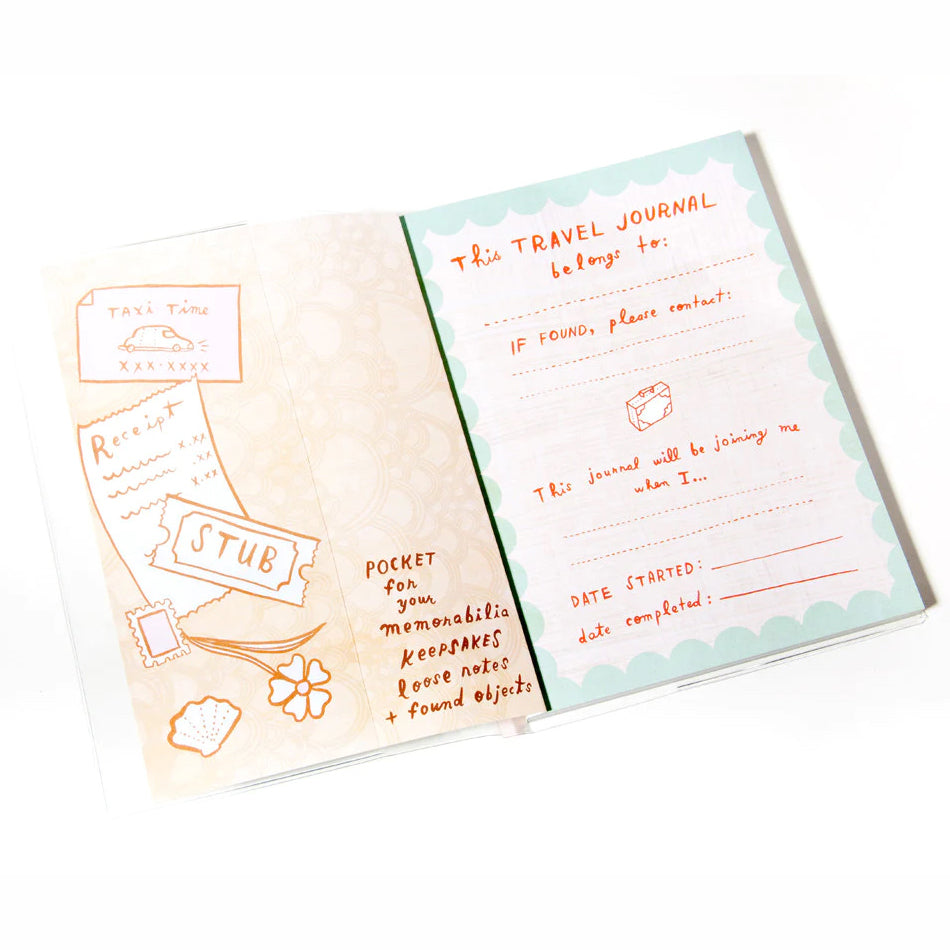 TAXI TIME
XXX-XXXX
Receipt
x.xx
x.xx
x.xx
STUB
POCKET
for
your
memorabilia
KEEPSAKES
loose notes
+ found objects
This TRAVEL JOURNAL
belongs to:
IF FOUND, please contact:
This journal will be joining me
when I...
DATE STARTED:
date completed: